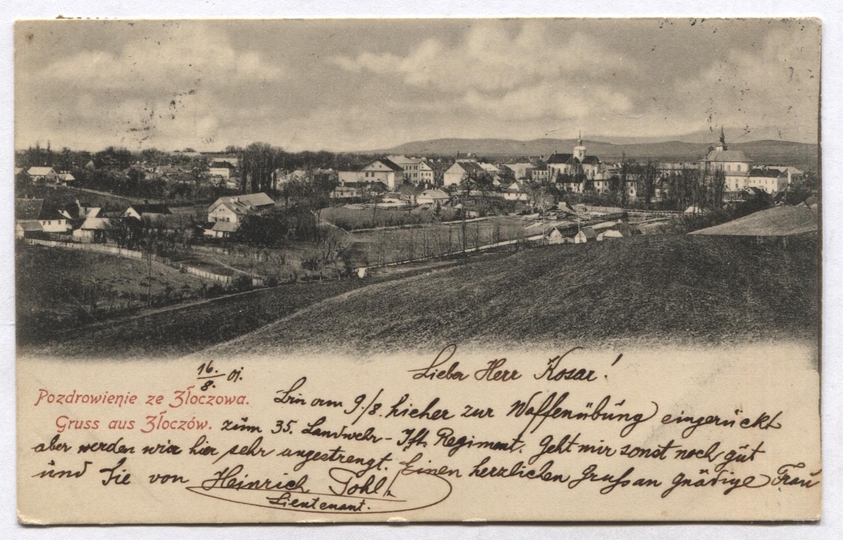 16./8. 01.
Lieber Herr Kosar!
Pozdrowienie ze Złoczowa.
Gruss aus Złoczów.
Bin am 9./8. hieher zur Waffenübung eingerückt
zum 35. Landwehr-Inft. Regiment. Geht mir sonst noch gut
aber werden wir hier sehr angestrengt. Einen herzlichen Gruss an gnädige Frau
und Sie von Heinrich Pohl,
Lieutenant.